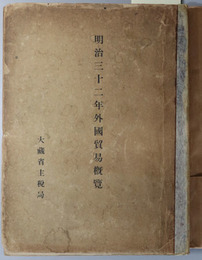 明治三十二年外國貿易概覽
大藏省主税局